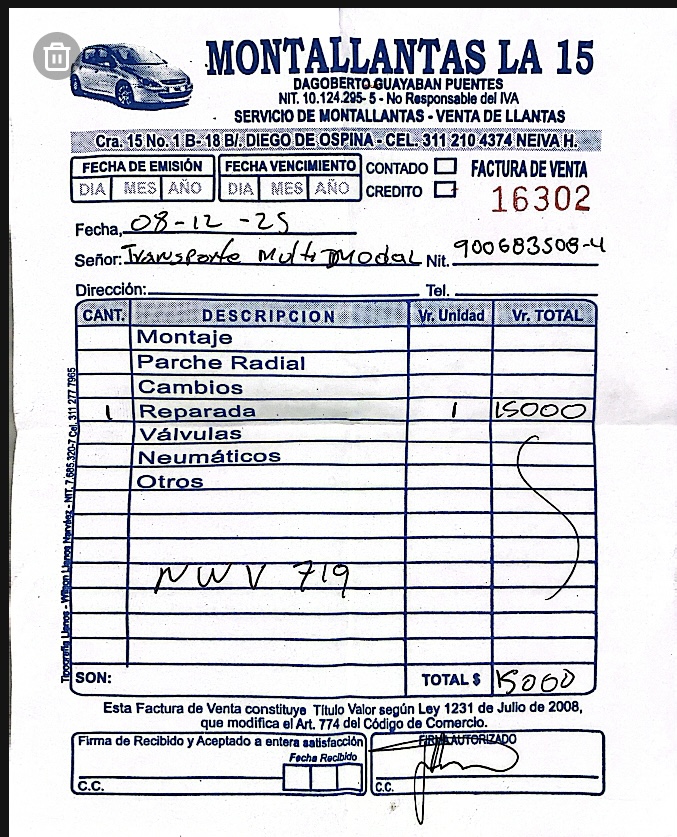 MONTALLANTAS LA 15
DAGOBERTO GUAYABAN PUENTES
NIT. 10.124.295-5 - No Responsable del IVA
SERVICIO DE MONTALLANTAS - VENTA DE LLANTAS
Cra. 15 No. 1 B - 18 B/. DIEGO DE OSPINA - CEL. 311 210 4374 NEIVA H.
FECHA DE EMISIÓN FECHA VENCIMIENTO CONTADO FACTURA DE VENTA
DIA MES AÑO DIA MES AÑO CREDITO 16302
Fecha, 08-12-25
Señor: Transporte Multimodal Nit. 900683508-4
Dirección: Tel.
CANT. DESCRIPCION Vr. Unidad Vr. TOTAL
Montaje
Parche Radial
Cambios
1 Reparada 1 15000
Válvulas
Neumáticos
Otros
NWV 719
SON: TOTAL $ 15000
Esta Factura de Venta constituye Título Valor según Ley 1231 de Julio de 2008,
que modifica el Art. 774 del Código de Comercio.
Firma de Recibido y Aceptado a entera satisfacción FIRMA AUTORIZADO
Fecha Recibido
C.C. C.C.
Tipografía Llanos - Wilson Llanos Narváez - NIT. 7.685.320-7 Cel. 311 277 7965